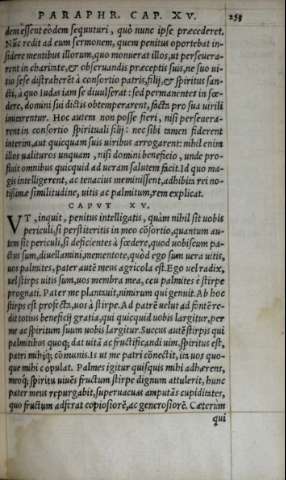 PARAPHR. CAP. XV. 258
dem essent eôdem sequuturi, quò nunc ipse præcederet.
Nũc redit ad eum sermonem, quem penitus oportebat in-
sidere mentibus illorum, quo monuerat illos, ut perseuera-
rent in charitate, & obseruandis præceptis suis, ne suo ui-
tio sese distraherẽt à consortio patris, filij, & spiritus san-
cti, à quo Iudas iam se diuulserat: sed permanentes in fœ-
dere, domini sui dictis obtemperarent, factis pro sua uirili
imitarentur. Hoc autem non posse fieri, nisi perseuera-
rent in consortio spirituali sibi: nec sibi tamen fiderent
interim, aut quicquam suis uiribus arrogarent: nihil enim
illos ualituros unquam, nisi domini beneficio, unde pro-
fluit omnibus quicquid ad ueram salutem facit. Id quo ma-
gis intelligerent, ac tenacius meminissent, adhibita rei no-
tissimæ similitudine, uitis ac palmitum, rem explicat.
CAPVT XV.
VT, inquit, penitus intelligatis, quàm nihil sit uobis
periculi, si perstiteritis in meo cõsortio, quantum au-
tem sit periculi, si deficientes à fœdere, quod uobiscum pa-
ctus sum, diuellamini, mementote, quòd ego sum uera uitis,
uos palmites, pater autẽ meus agricola est. Ego uel radix,
uel stirps uitis sum, uos membra mea, ceu palmites è stirpe
prognati. Pater me plantauit, nimirum qui genuit. Ab hoc
stirps est profecta, uos à stirpe. Ad patrẽ uelut ad fontẽ re-
dit totius beneficij gratia, qui quicquid uobis largitur, per
me ac spiritum suum uobis largitur. Succus autẽ stirpis qui
palmitibus quoq; dat uitã ac fructificandi uim, spiritus est,
patri mihiq; cõmunis. Is ut me patri cõnectit, ita uos quo-
que mihi copulat. Palmes igitur quisquis mihi adhærens,
meoq; spiritu uiuẽs fructum stirpe dignum attulerit, hunc
pater meus repurgabit, superuacuas amputãs cupiditates,
quo fructum adferat copiosiorẽ, ac generosiorẽ. Cæterùm
qui